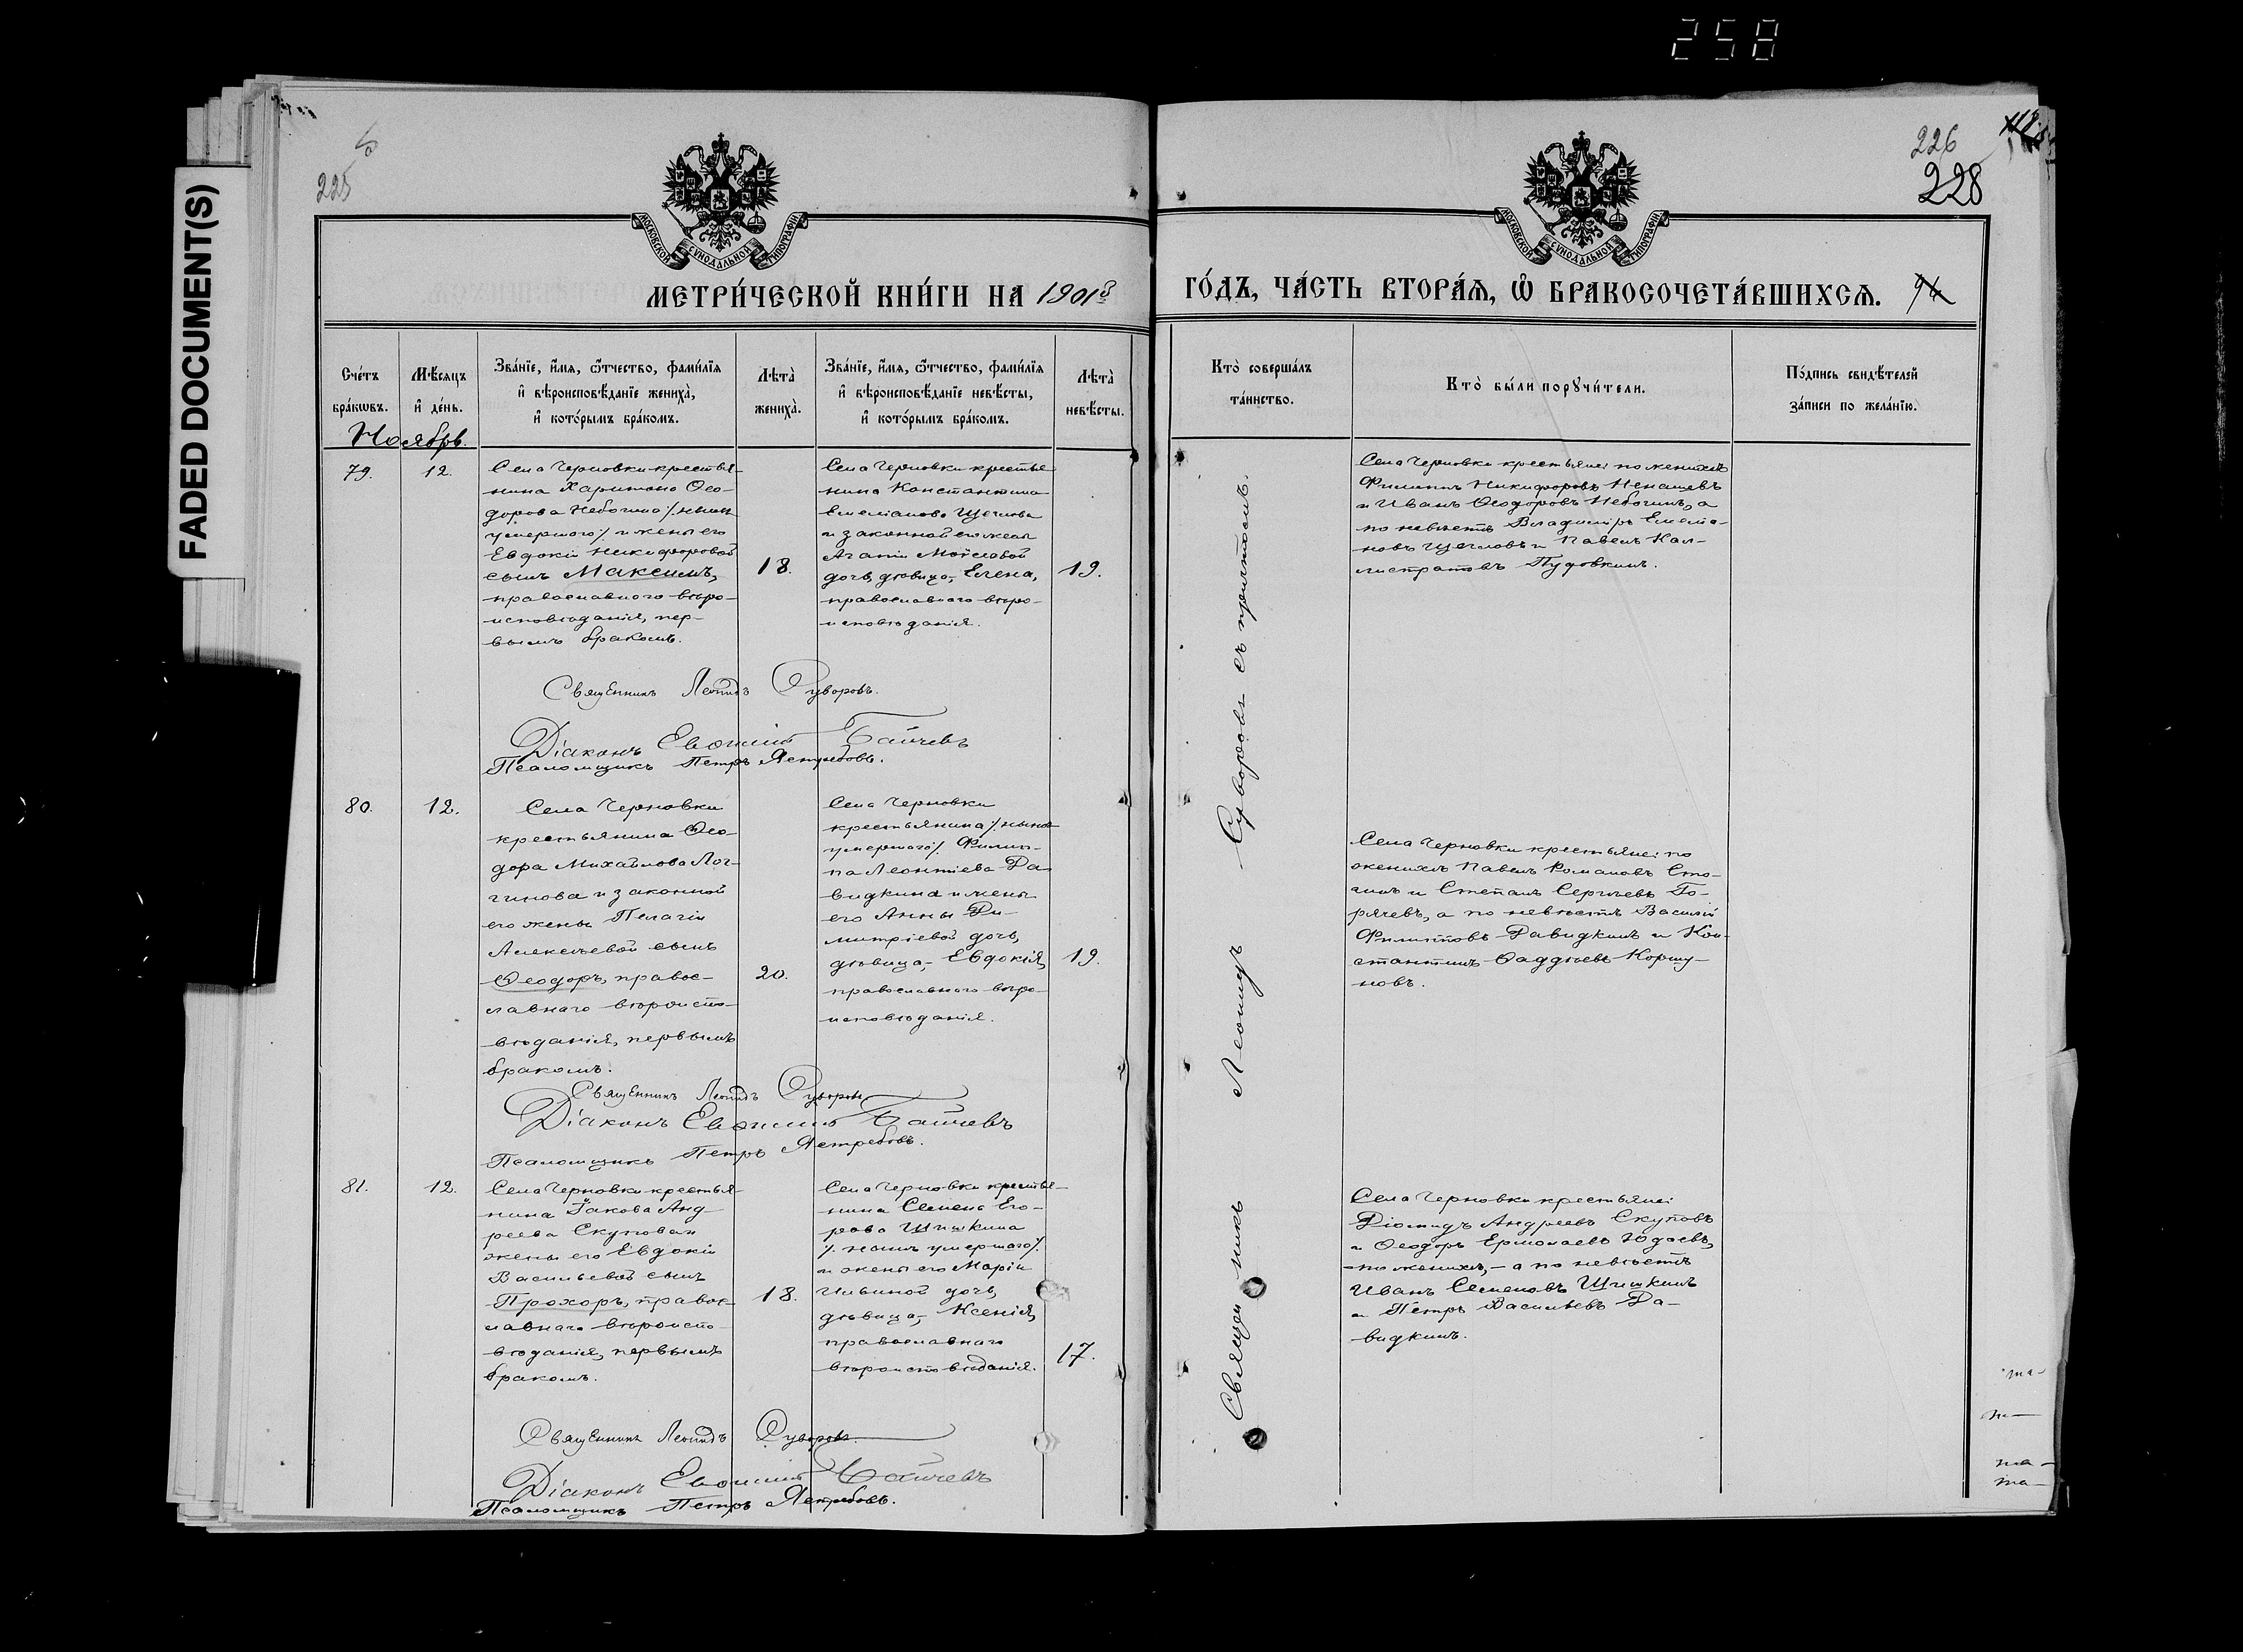 258
FADED DOCUMENT(S)
225
226
228
МОСКОВСКОЙ СУНОДАЛЬНОЙ ТИПОГРАФІИ
МОСКОВСКОЙ СУНОДАЛЬНОЙ ТИПОГРАФІИ
МЕТРИ́ЧЕСКОЙ КНИ́ГИ НА 1901й
ГО́ДЪ, ЧА́СТЬ ВТОРА́Ѧ, Ѡ҆ БРАКОСОЧЕТА́ВШИХСѦ.
Сче́тъ бра́кѡвъ.
Мѣ́сяцъ и҆ де́нь.
Зва́нїе, и҆́мя, ѻ҆́тчество, фами́лїя
и҆ вѣроисповѣ́данїе жениха̀,
и҆ кото́рымъ бра́комъ.
Лѣта̀ жениха̀.
Зва́нїе, и҆́мя, ѻ҆́тчество, фами́лїя
и҆ вѣроисповѣ́данїе невѣ́сты,
и҆ кото́рымъ бра́комъ.
Лѣта̀ невѣ́сты.
Кто̀ соверша́лъ
та́инство.
Кто̀ бы́ли порꙋчи́тели.
По́дпись свидѣ́телей
за́писи по жела́нїю.
Ноябрь.
79.
12.
Села Черновки крестья-
нина Харитона Ѳео-
дорова Небогина ./. нынѣ
умершаго ./. и жены его
Евдокіи Никифоровой
сынъ Максимъ,
православнаго вѣро-
исповѣданія, пер-
вымъ бракомъ.
18.
Села Черновки крестья-
нина Константина
Емеліанова Щеглова
и законной его жены
Агапіи Моѵсеовой
дочь, дѣвица,- Елена,
православнаго вѣро-
исповѣданія.
19.
Села Черновки крестьяне: по женихѣ
Филиппъ Никифоровъ Ненашевъ
и Иванъ Ѳеодоровъ Небогинъ, а
по невѣстѣ Владиміръ Емелiа-
новъ Щегловъ и Павелъ Кал-
листратовъ Пудовкинъ.
Священникъ Леонидъ Суворовъ.
Діаконъ Евѳимій
Псаломщикъ Петръ Ястребовъ.
80.
12.
Села Черновки
крестьянина Ѳео-
дора Михайлова Лог-
гинова и законной
его жены Пелагіи
Алексѣевой сынъ
Ѳеодоръ, правос-
лавнаго вѣроиспо-
вѣданія, первымъ
бракомъ.
20.
Села Черновки
крестьянина ./. нынѣ
умершаго ./. Филип-
па Леонтіева Да-
видкина и жены
его Анны Ди-
митріевой дочь,
дѣвица,- Евдокія,
православнаго вѣро-
исповѣданія.
19.
Села Черновки крестьяне: по
женихѣ Павелъ Романовъ Сто-
 гинъ и Степанъ Сергѣевъ Го-
рячевъ, а по невѣстѣ Василій
Филипповъ Давидкинъ и Кон-
стантинъ Ѳаддѣевъ Коршу-
новъ.
Священникъ Леонидъ Суворовъ
Діаконъ Евѳимій
Псаломщикъ Петръ Ястребовъ.
81.
12.
Села Черновки крестья-
нина Іакова Анд-
реева Скупова и
жены его Евдокіи
Васильевой сынъ
Прохоръ, правос-
лавнаго вѣроиспо-
вѣданія, первымъ
бракомъ.
18.
Села Черновки крестья-
нина Семена Его-
рова Шишкина
./. нынѣ умершаго ./.
и жены его Маріи
Ильиной дочь,
дѣвица,- Ксенія,
православнаго
вѣроисповѣданія.
17.
Села Черновки крестьяне:
Діомидъ Андреевъ Скуповъ
и Ѳеодоръ Ермолаевъ Юдаевъ,
-по женихѣ,- а по невѣстѣ
Иванъ Семеновъ Шишкинъ
и Петръ Васильевъ Да-
видкинъ.
Священникъ Леонидъ Суворовъ.
Діаконъ Евѳимій
Псаломщикъ Петръ Ястребовъ.
Священникъ Леонидъ Суворовъ съ причтомъ.